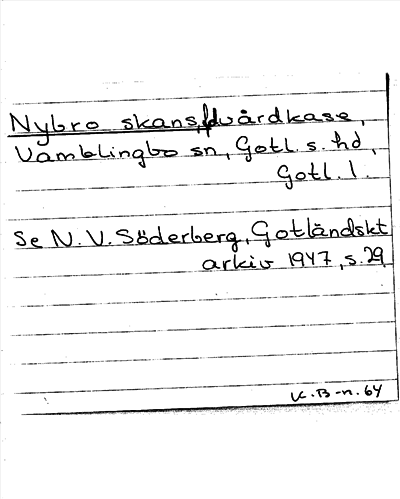 Nybro skans, vårdkase,
Vamblingbo sn, Gotl. s. hd,
Gotl. l.
Se N. V. Söderberg, Gotländskt
arkiv 1947, s. 29
K. B-n. 64